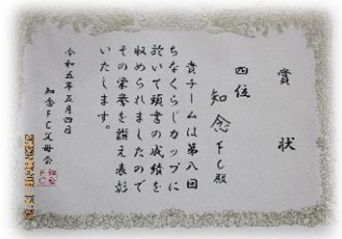 賞状
四位
知念FC殿
貴チームは第八回
ちなくらじカップに
於いて頭書の成績を
収められましたので
その栄誉を讃え表彰
いたします。
令和五年五月四日
知念FC父母会